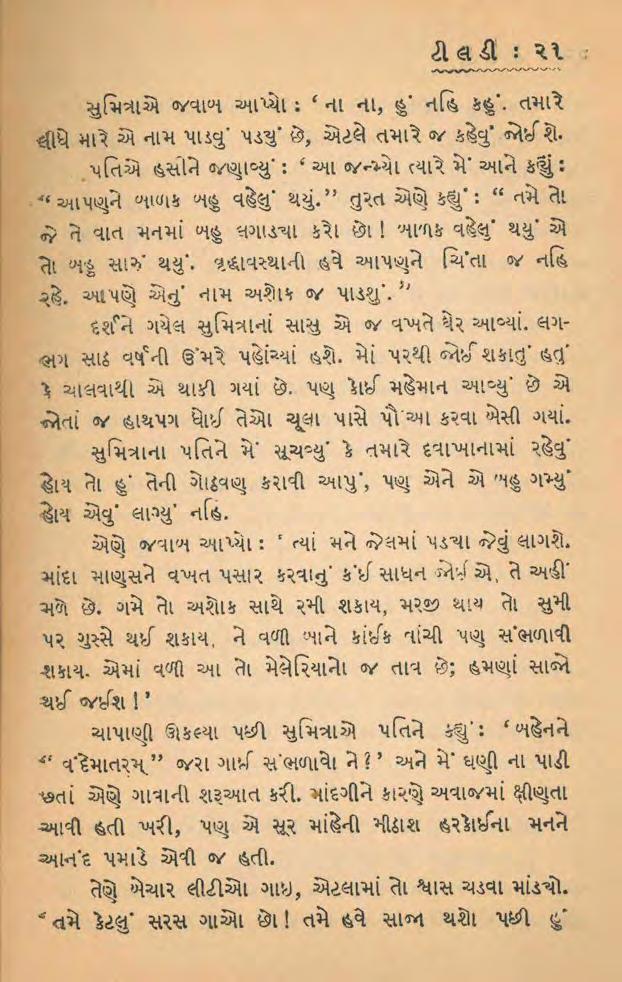 ટીલડી : ૨૧
સુમિત્રાએ જવાબ આપ્યો : ‘ ના ના, હું નહિ કહું. તમારે
લીધે મારે એ નામ પાડવું પડયું છે, એટલે તમારે જ કહેવું જોઈશે.
પતિએ હસીને જણાવ્યું : ‘ આ જન્મ્યો ત્યારે મેં આને કહ્યું :
“ આપણને બાળક બહુ વહેલું થયું.” તુરત એણે કહ્યું : “ તમે તો
જે તે વાત મનમાં બહુ લગાડયા કરો છો ! બાળક વહેલું થયું એ
તો બહુ સારું થયું. વૃદ્ધાવસ્થાની હવે આપણને ચિંતા જ નહિ
રહે. આપણે એનું નામ અશોક જ પાડશું.”
દર્શને ગયેલ સુમિત્રાનાં સાસુ એ જ વખતે ઘેર આવ્યાં. લગ-
ભગ સાઠ વર્ષની ઉંમરે પહોંચ્યાં હશે. મોં પરથી જોઈ શકાતું હતું
કે ચાલવાથી એ થાકી ગયાં છે. પણ કોઈ મહેમાન આવ્યું છે એ
જોતાં જ હાથપગ ધોઈ તેઓ ચૂલા પાસે પૌંઆ કરવા બેસી ગયાં.
સુમિત્રાના પતિને મેં સૂચવ્યું કે તમારે દવાખાનામાં રહેવું
હોય તો હું તેની ગોઠવણ કરાવી આપું, પણ એને એ બહુ ગમ્યું
હોય એવું લાગ્યું નહિ.
એણે જવાબ આપ્યો : ‘ ત્યાં મને જેલમાં પડયા જેવું લાગશે.
માંદા માણસને વખત પસાર કરવાનું કંઈ સાધન જોઈએ, તે અહીં
મળે છે. ગમે તો અશોક સાથે રમી શકાય, મરજી થાય તો સુમી
પર ગુસ્સે થઈ શકાય, ને વળી બાને કાંઈક વાંચી પણ સંભળાવી
શકાય. એમાં વળી આ તો મેલેરિયાનો જ તાવ છે; હમણાં સાજો
થઈ જઈશ ! ’
ચાપાણી ઊકલ્યા પછી સુમિત્રાએ પતિને કહ્યું : ‘ બહેનને
“ વંદેમાતરમ્ ” જરા ગાઈ સંભળાવો ને ? ’ અને મેં ઘણી ના પાડી
છતાં એણે ગાવાની શરૂઆત કરી. માંદગીને કારણે અવાજમાં ક્ષીણતા
આવી હતી ખરી, પણ એ સૂર માંહેની મીઠાશ હરકોઈના મનને
આનંદ પમાડે એવી જ હતી.
તેણે બેચાર લીટીઓ ગાઇ, એટલામાં તો શ્વાસ ચડવા માંડયો.
“ તમે કેટલું સરસ ગાઓ છો ! તમે હવે સાજા થશો પછી હું